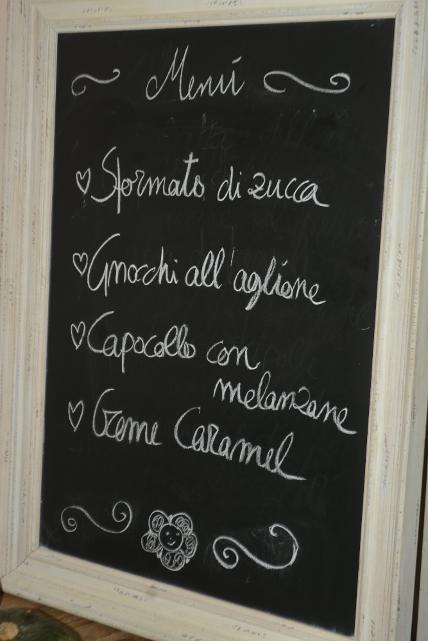 Menú
Sformato di zucca
Gnocchi all'aglione
Capocollo con
melanzane
Creme Caramel